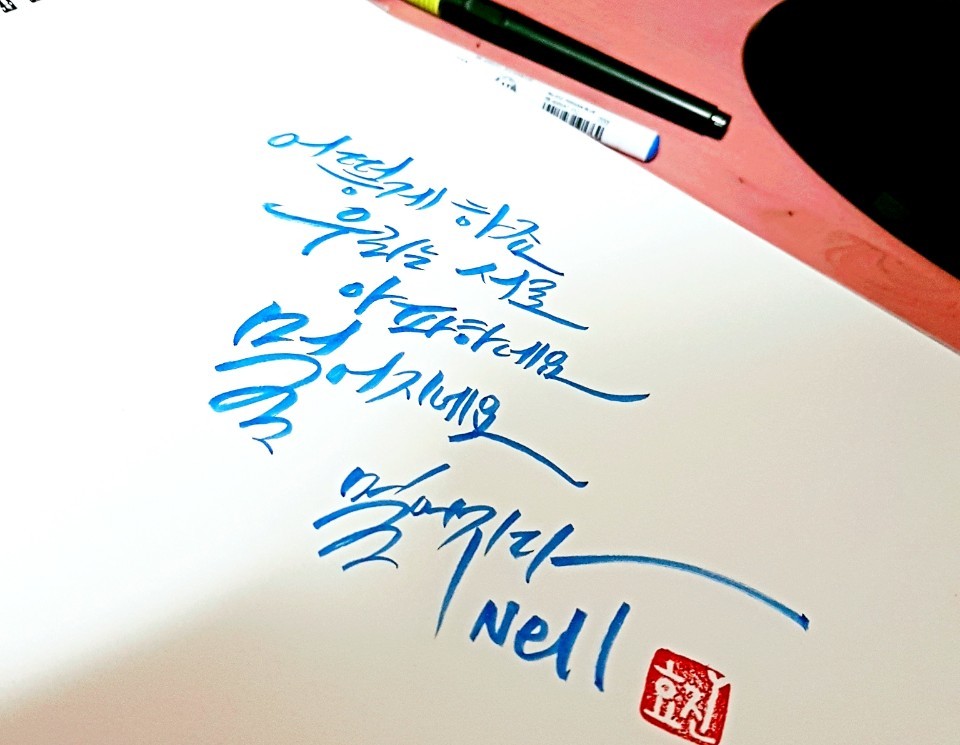 어떻게 하죠
우리는 서로
아파하네요
멀어지네요
멀어지다
Nell
효진